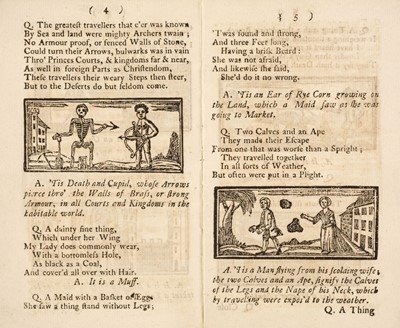 ( 4 )
Q. The greatest travellers that e'er was known
By Sea and land were mighty Archers twain ;
No Armour proof, or fenced Walls of Stone,
Could turn their Arrows, bulwarks was in vain
Thro' Princes Courts, & kingdoms far & near,
As well in foreign Parts as Christendom,
These travellers their weary Steps then steer,
But to the Deserts do but seldom come.
A. 'Tis Death and Cupid, whose Arrows
pierce thro' the Walls of Brass, or strong
Armour, in all Courts and Kingdoms in the
habitable world.
Q. A dainty fine thing,
Which under her Wing
My Lady does commonly wear,
With a bottomless Hole,
As black as a Coal,
And cover'd all over with Hair.
A. It is a Muff.
Q. A Maid with a Basket of Eggs
She saw a thing stand without Legs;
( 5 )
'Twas found and strong,
And three Feet long,
Having a brisk Beard:
She was not afraid,
And likewise she said,
She'd do it no wrong.
A. 'Tis an Ear of Rye Corn growing on
the Land, which a Maid saw as she was
going to Market.
Q. Two Calves and an Ape
They made their Escape
From one that was worse than a Spright;
They travelled together
In all sorts of Weather,
But often were put in a Plight.
A. 'Tis a Man flying from his scolding wife;
the two Calves and an Ape, signify the Calves
of the Legs and the Nape of his Neck, which
by travelling were expos'd to the weather.
Q. A Thing